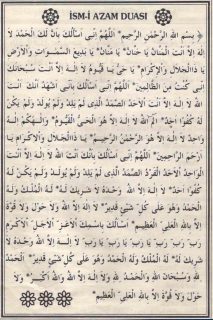 İSM-İ AZAM DUASI
﴿ بِسْمِ اللهِ الرَّحْمٰنِ الرَّحِيمِ * اَللّٰهُمَّ اِنِّى اَسْأَلُكَ بِاَنَّ لَكَ الْحَمْدَ لَا
اِلٰهَ اِلَّا اَنْتَ الْمَنَّانُ يَا حَنَّانُ * يَا مَنَّانُ * يَا بَدِيعَ السَّمٰوَاتِ وَالْاَرْضِ
يَا ذَا الْجَلَالِ وَالْاِكْرَامِ * يَا حَىُّ يَا قَيُّومُ لَا اِلٰهَ اِلَّا اَنْتَ سُبْحَانَكَ
اِنِّى كُنْتُ مِنَ الظَّالِمِينَ * اَللّٰهُمَّ اِنِّى اَسْأَلُكَ بِاَنِّى اَشْهَدُ اَنَّكَ اَنْتَ اللهُ لَا
اِلٰهَ اِلَّا اَنْتَ الْاَحَدُ الصَّمَدُ الَّذِى لَمْ يَلِدْ وَلَمْ يُولَدْ وَلَمْ يَكُنْ لَهُ
كُفُوًا اَحَدٌ * الٓمٓ اَللهُ لَا اِلٰهَ اِلَّا هُوَ الْحَىُّ الْقَيُّومُ * وَاِلٰهُكُمْ اِلٰهٌ
وَاحِدٌ لَا اِلٰهَ اِلَّا هُوَ الرَّحْمٰنُ الرَّحِيمُ * يَا ذَا الْجَلَالِ وَالْاِكْرَامِ يَا
اَرْحَمَ الرَّاحِمِينَ * اَللّٰهُمَّ اِنِّى اَسْأَلُكَ بِاَنَّكَ اَنْتَ اللهُ لَا اِلٰهَ اِلَّا اَنْتَ
الْوَاحِدُ الْاَحَدُ الْفَرْدُ الصَّمَدُ الَّذِى لَمْ يَلِدْ وَلَمْ يُولَدْ وَلَمْ يَكُنْ لَهُ
كُفُوًا اَحَدٌ * لَا اِلٰهَ اِلَّا اللهُ وَحْدَهُ لَا شَرِيكَ لَهُ * لَهُ الْمُلْكُ وَلَهُ
الْحَمْدُ وَهُوَ عَلٰى كُلِّ شَىْءٍ قَدِيرٌ * لَا اِلٰهَ اِلَّا اللهُ وَلَا حَوْلَ وَلَا قُوَّةَ
اِلَّا بِاللهِ الْعَلِىِّ الْعَظِيمِ * اَللّٰهُمَّ اِنِّى اَسْأَلُكَ بِاسْمِكَ الْاَعَزِّ الْاَجَلِّ الْاَكْرَمِ
يَا رَبِّ يَا رَبِّ يَا رَبِّ يَا رَبِّ * لَا اِلٰهَ اِلَّا اللهُ وَحْدَهُ لَا
شَرِيكَ لَهُ * لَهُ الْمُلْكُ وَلَهُ الْحَمْدُ وَهُوَ عَلٰى كُلِّ شَىْءٍ قَدِيرٌ * اَلْحَمْدُ
لِلّٰهِ وَسُبْحَانَ اللهِ وَالْحَمْدُ لِلّٰهِ وَلَا اِلٰهَ اِلَّا اللهُ وَاللهُ اَكْبَرُ * وَلَا
حَوْلَ وَلَا قُوَّةَ اِلَّا بِاللهِ الْعَلِىِّ الْعَظِيمِ *